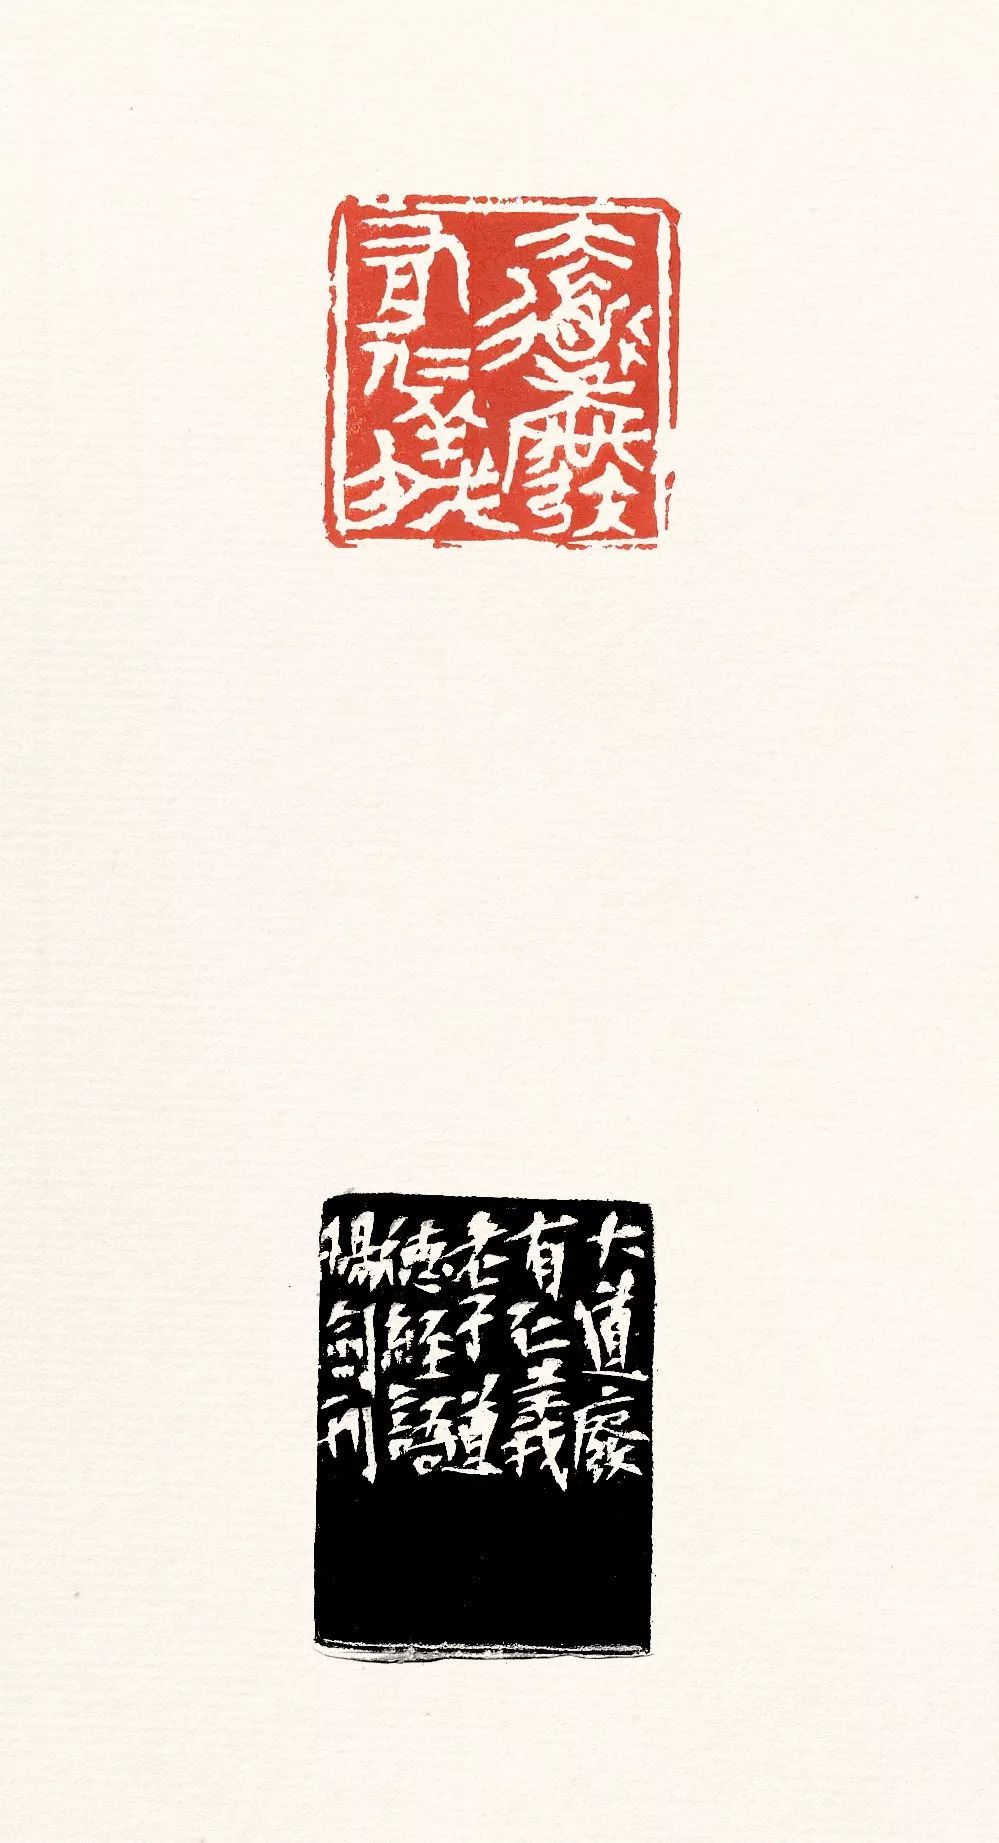 大道廢
有仁義
大道廢
有仁義
老子道
德經語
陽劍刊